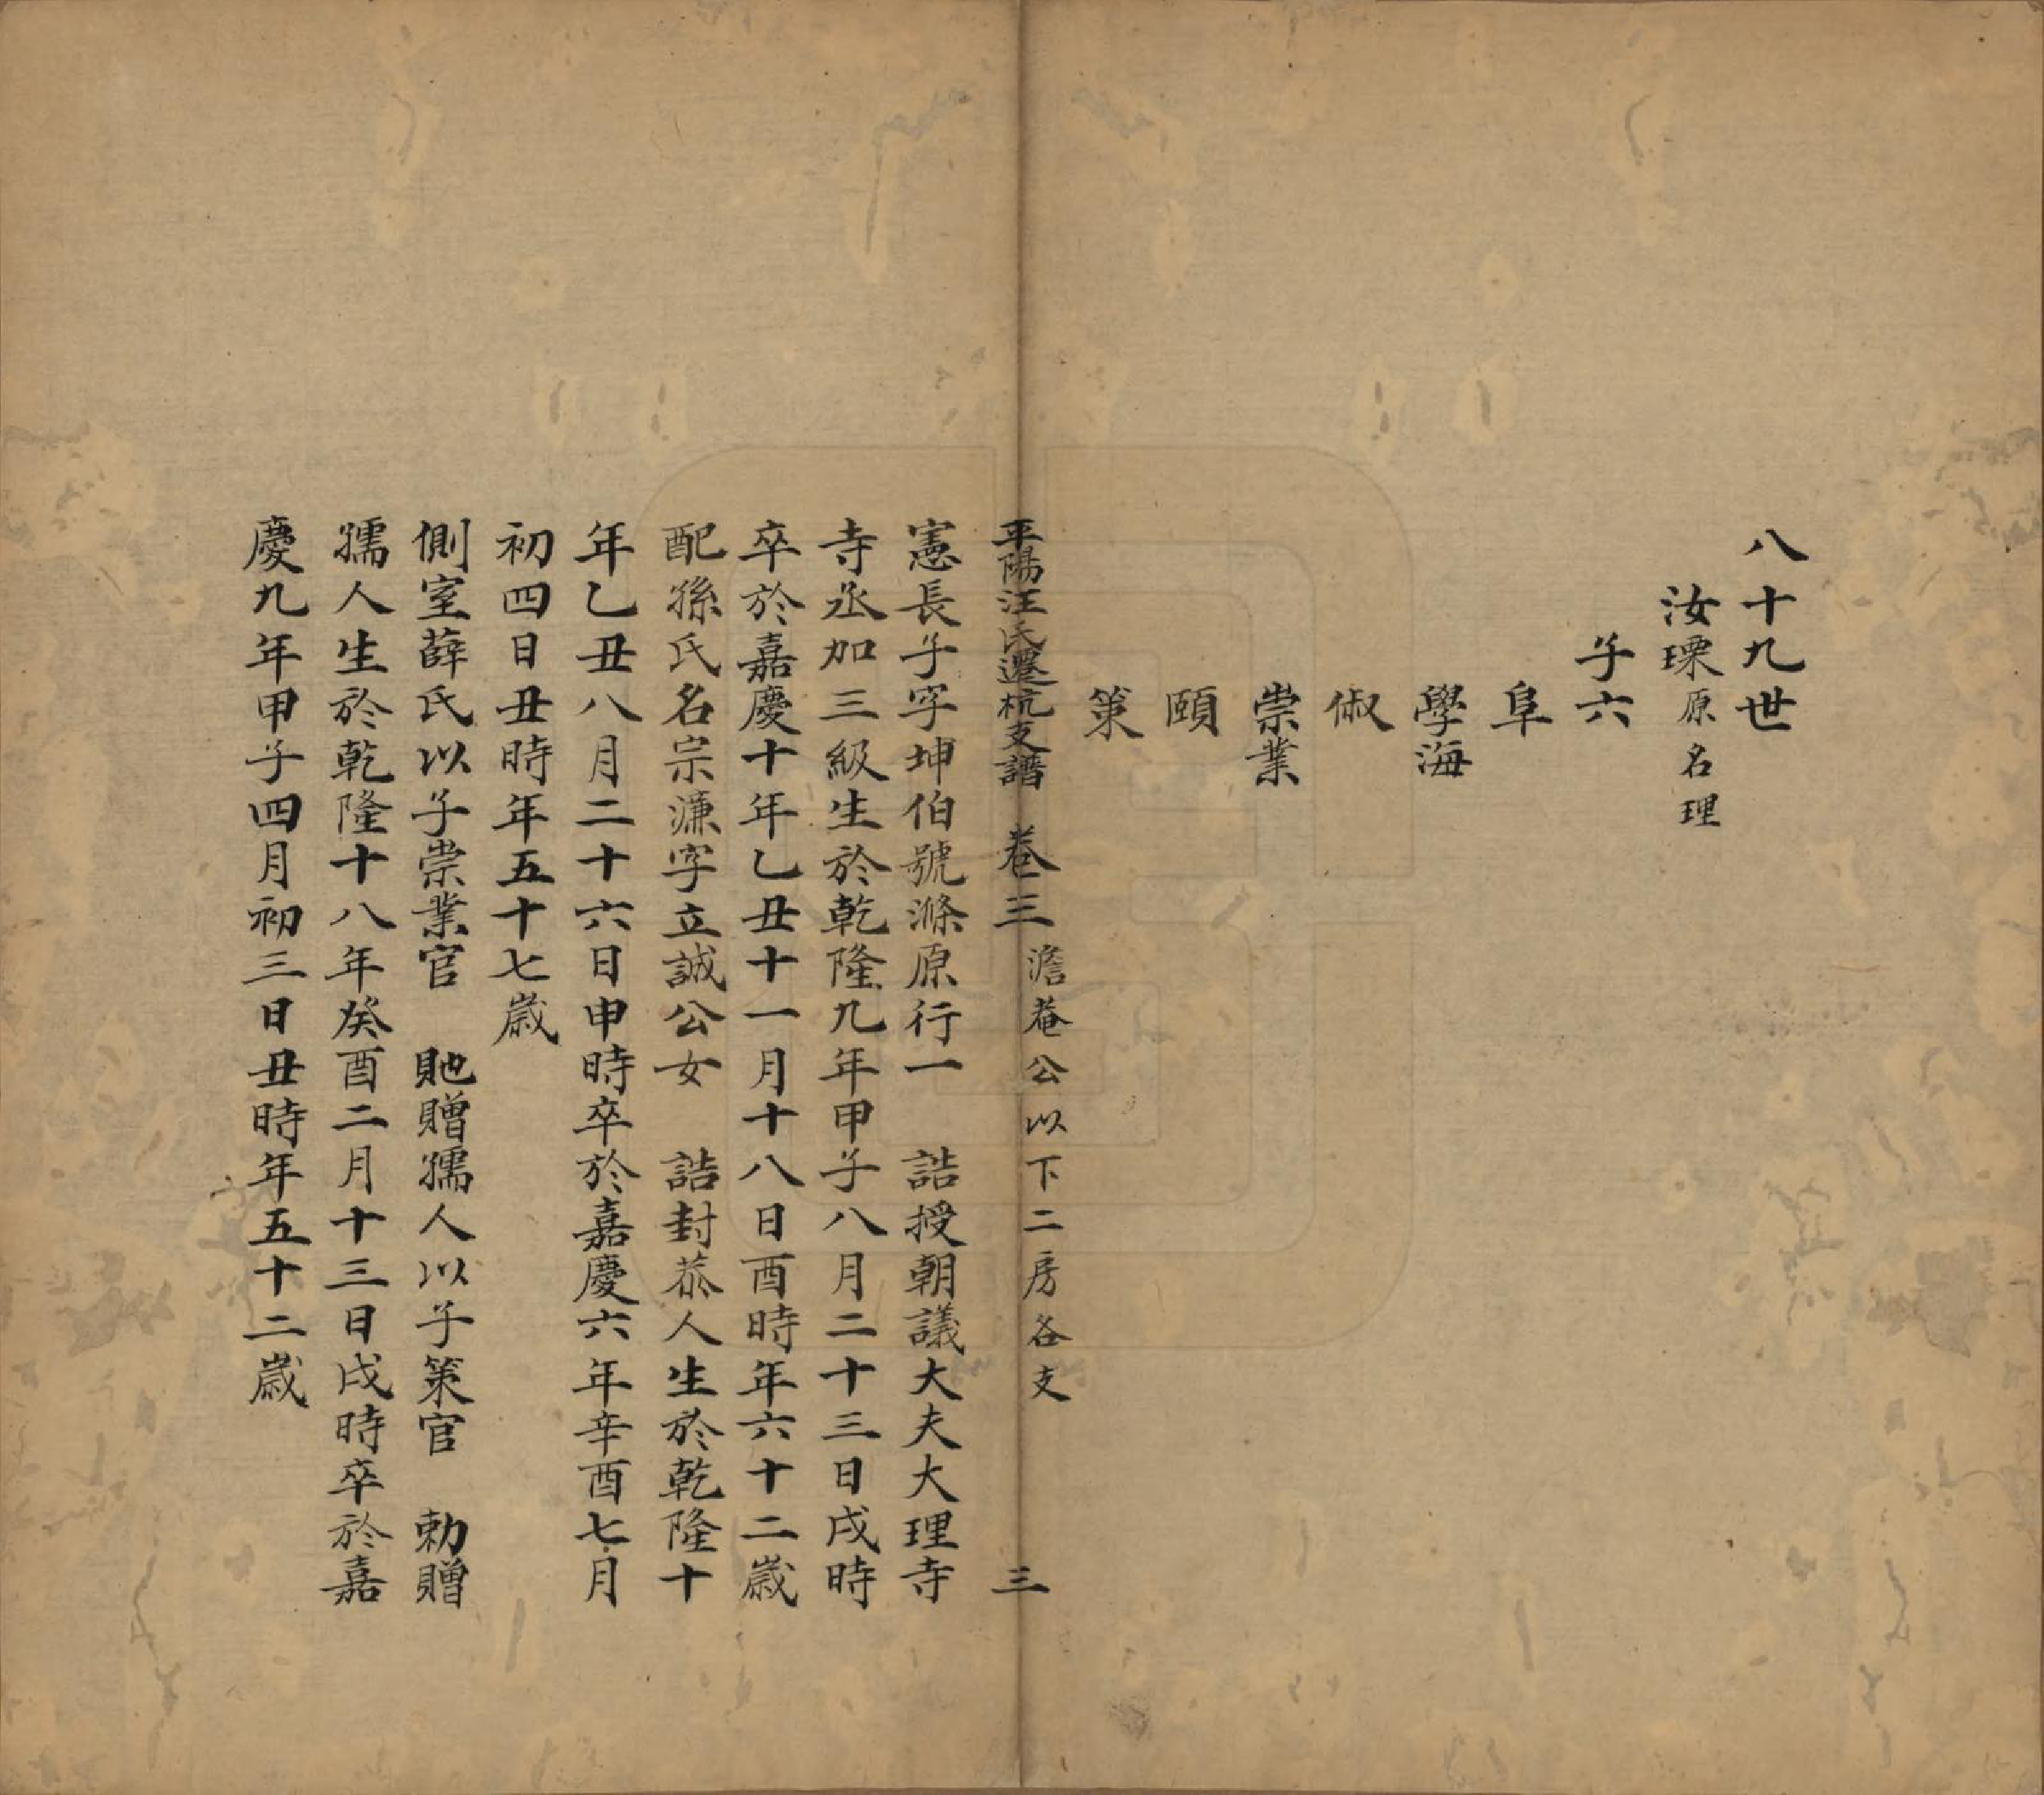 八十九世
汝瑮原名理
子六
阜
學海
俶
崇業
頤
策
平陽汪氏遷杭支譜 卷三 澹菴公以下二房各支 三
憲長子字坤伯號滌原行一 誥授朝議大夫大理寺
寺丞加三級生於乾隆九年甲子八月二十三日戌時
卒於嘉慶十年乙丑十一月十八日酉時年六十二歲
配孫氏名宗濂字立誠公女 誥封恭人生於乾隆十
年乙丑八月二十六日申時卒於嘉慶六年辛酉七月
初四日丑時年五十七歲
側室薛氏以子崇業官 貤贈孺人以子策官 勅贈
孺人生於乾隆十八年癸酉二月十三日戌時卒於嘉
慶九年甲子四月初三日丑時年五十二歲